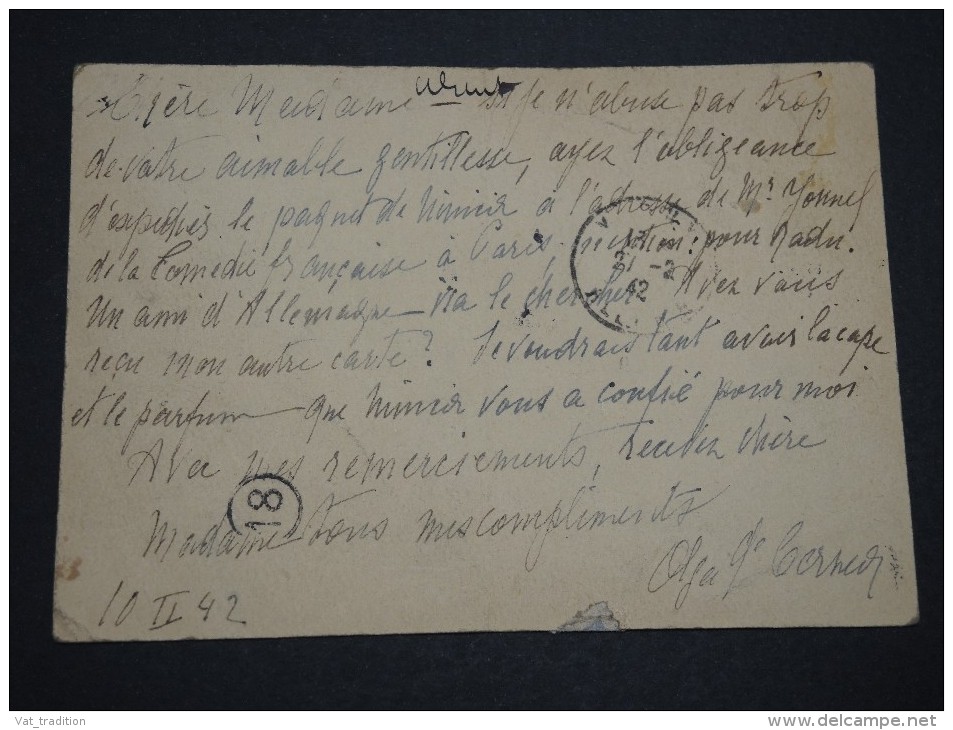 Chère Madame si je n'abuse pas trop
de votre aimable gentillesse, ayez l'obligeance
d'expédier le paquet de à l'adresse de Mr Yonnel
de la Comédie française à Paris, mention: pour Radu.
Un ami d'Allemagne ira le chercher Avez vous
reçu mon autre carte? Je voudrais tant avoir la cape
et le parfum que vous a confié pour moi
Avec mes remerciements, recevez chère
Madame tous mes compliments
Olga
10 II 42
18
Vat_tradition
http://www.delcampe.net